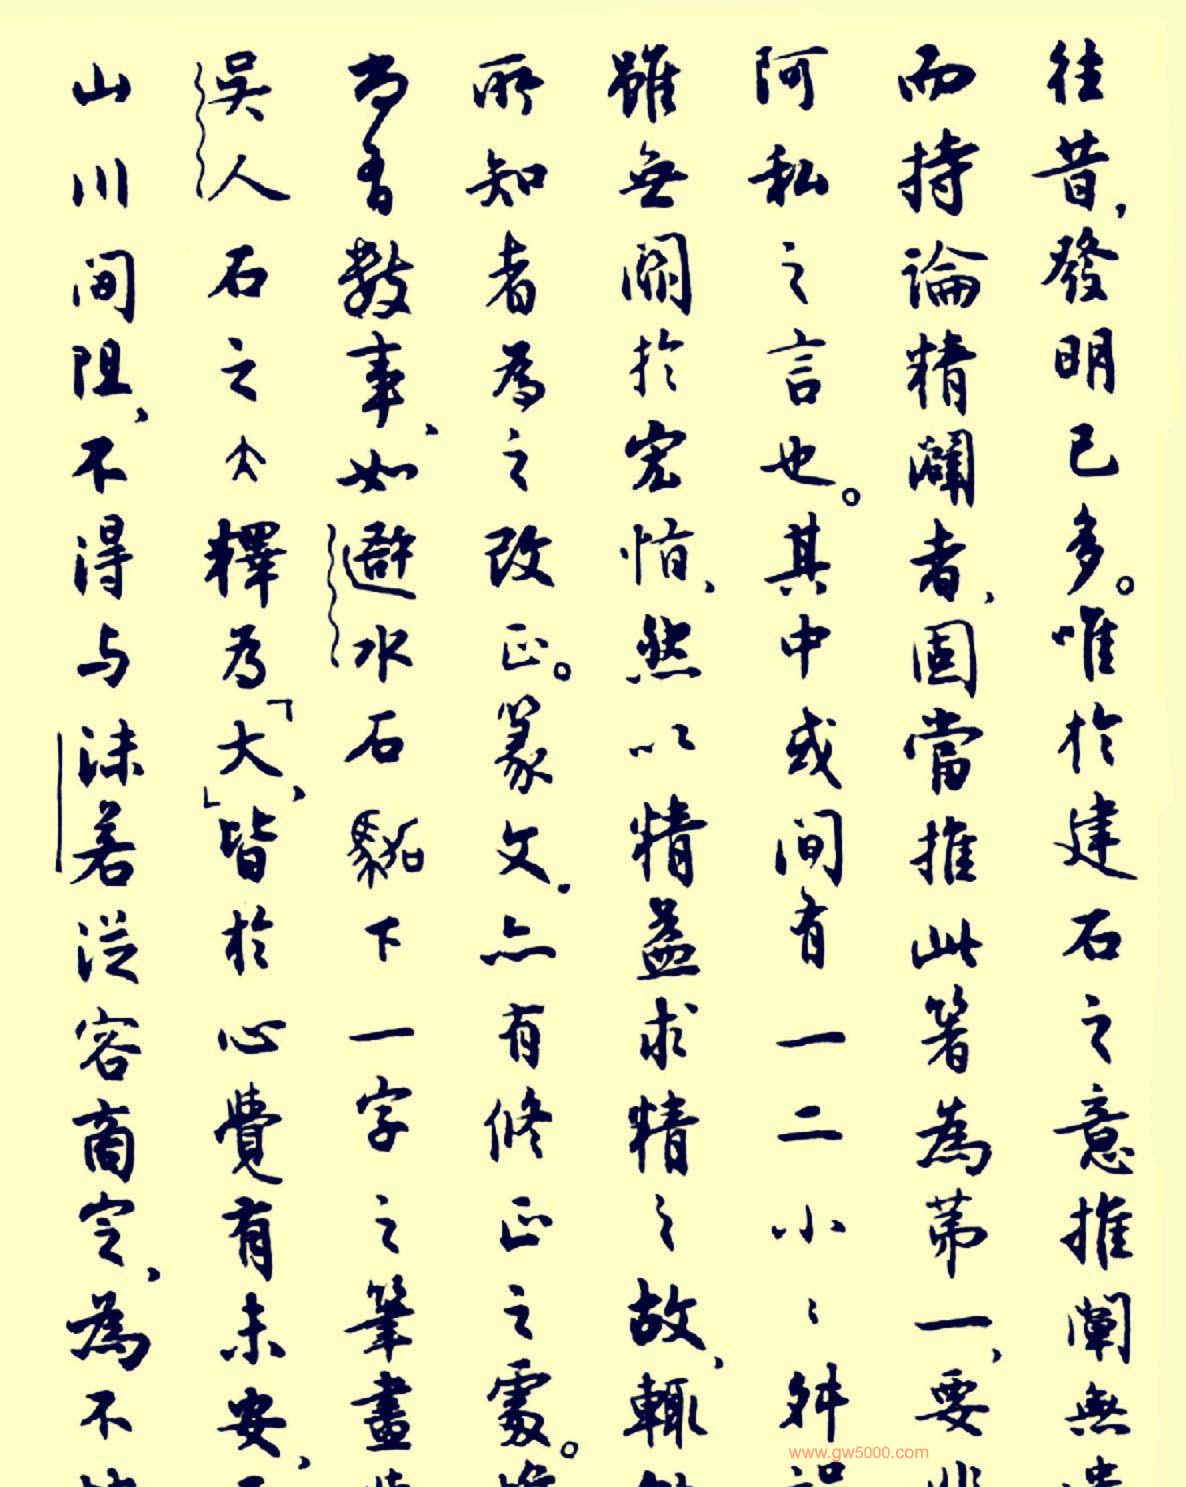 往昔，發明已多。唯於建石之意推闡無遺
而持論精闢者，固當推此箸為第一，要非
阿私之言也。其中或間有一二小〻舛誤
雖無關於宏恉，然以精益求精之故，輒
所知者為之改正。篆文，亦有修正之處。
尚有數事，如避水石下一字之筆畫
吳人石之大釋為「大」，皆於心覺有未安，
山川間阻，不得与沫若從容商定，為不
www.gw5000.com